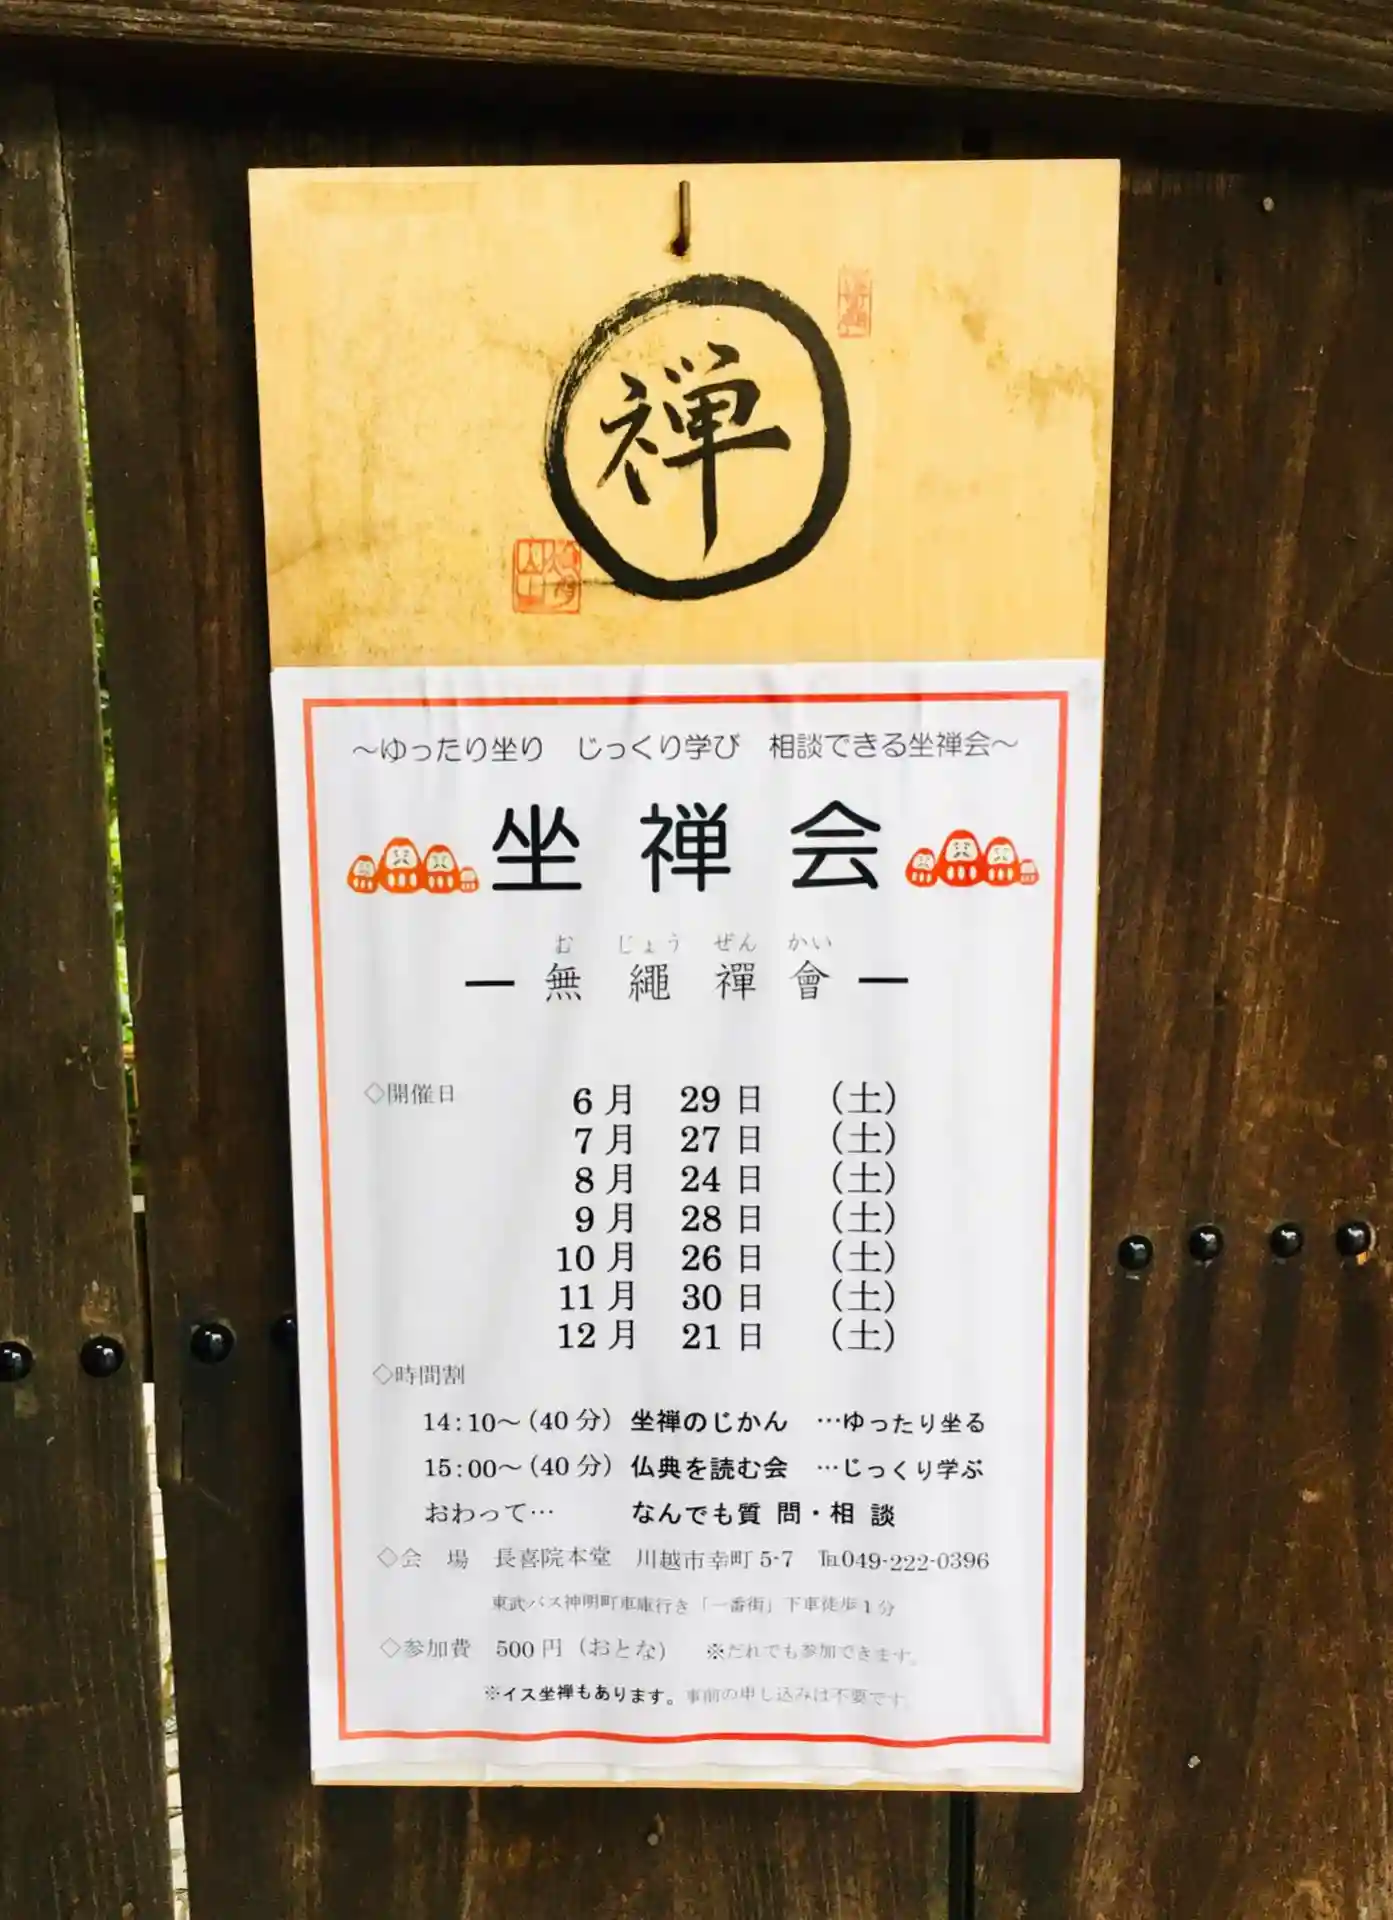 禅
〜ゆったり坐り　じっくり学び　相談できる坐禅会〜
坐 禅 会
む じょう ぜん かい
ー 無 繩 禪 會 ー
◇開催日 6月 29日 （土）
7月 27日 （土）
8月 24日 （土）
9月 28日 （土）
10月 26日 （土）
11月 30日 （土）
12月 21日 （土）
◇時間割
14:10〜（40分）坐禅のじかん …ゆったり坐る
15:00〜（40分）仏典を読む会 …じっくり学ぶ
おわって… なんでも質 問・相 談
◇会　場　長喜院本堂　川越市幸町 5-7　℡049-222-0396
東武バス神明町車庫行き「一番街」下車徒歩1分
◇参加費　500円（おとな）　※だれでも参加できます。
※イス坐禅もあります。事前の申し込みは不要です。